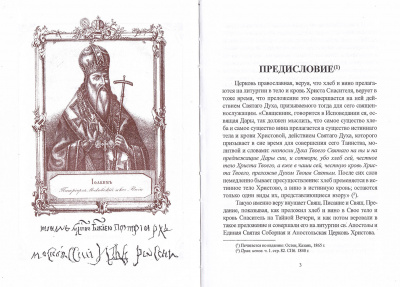 Іоакимъ
Патріархъ Московскій и всея Россіи
ПРЕДИСЛОВИЕ(1)
Церковь православная, веруя, что хлеб и вино прелага-
ются на литургии в тело и кровь Христа Спасителя, верует в
тоже время, что преложение это совершается на ней дейст-
вием Святаго Духа, призываемого тогда для сего священ-
нослужащим. «Священник, говорится в Исповедании ея, ос-
вящая Дары, так должен мыслить, что самое существо хлеба
и самое существо вина прелагается в существо истиннаго тела
и крови Христовой, действием Святаго Духа, которого
призывает в сие время для совершения сего Таинства, мо-
литвой и словами: ниспосли Духа Твоего Святаго на ны и на
предлежащия Дары сия, и сотвори, убо хлеб сей, честное
тело Христа Твоего, а еже в чаши сей, честную кровь
Христа Твоего, преложив Духом Твоим Святым. После сих слов
немедленно бывает пресуществление: хлеб пременяется в ис-
тинное тело Христово, а вино в истинную кровь; остаются
только одни виды их, представляющиеся взору» (2).
Такую именно веру внушают и Свящ. Писание и Свящ. Пре-
дание, показывая, как преложил хлеб и вино в Свое тело и
кровь Спаситель на Тайной Вечери, и как потом веровали в
таковое преложение и совершали его на литургии св. Апостолы и
Единая Святая Соборная и Апостольская Церковь Христова.
3